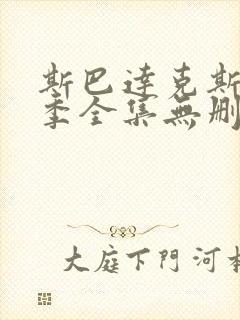 斯巴達克斯
季全集無刪
大庭下門河本